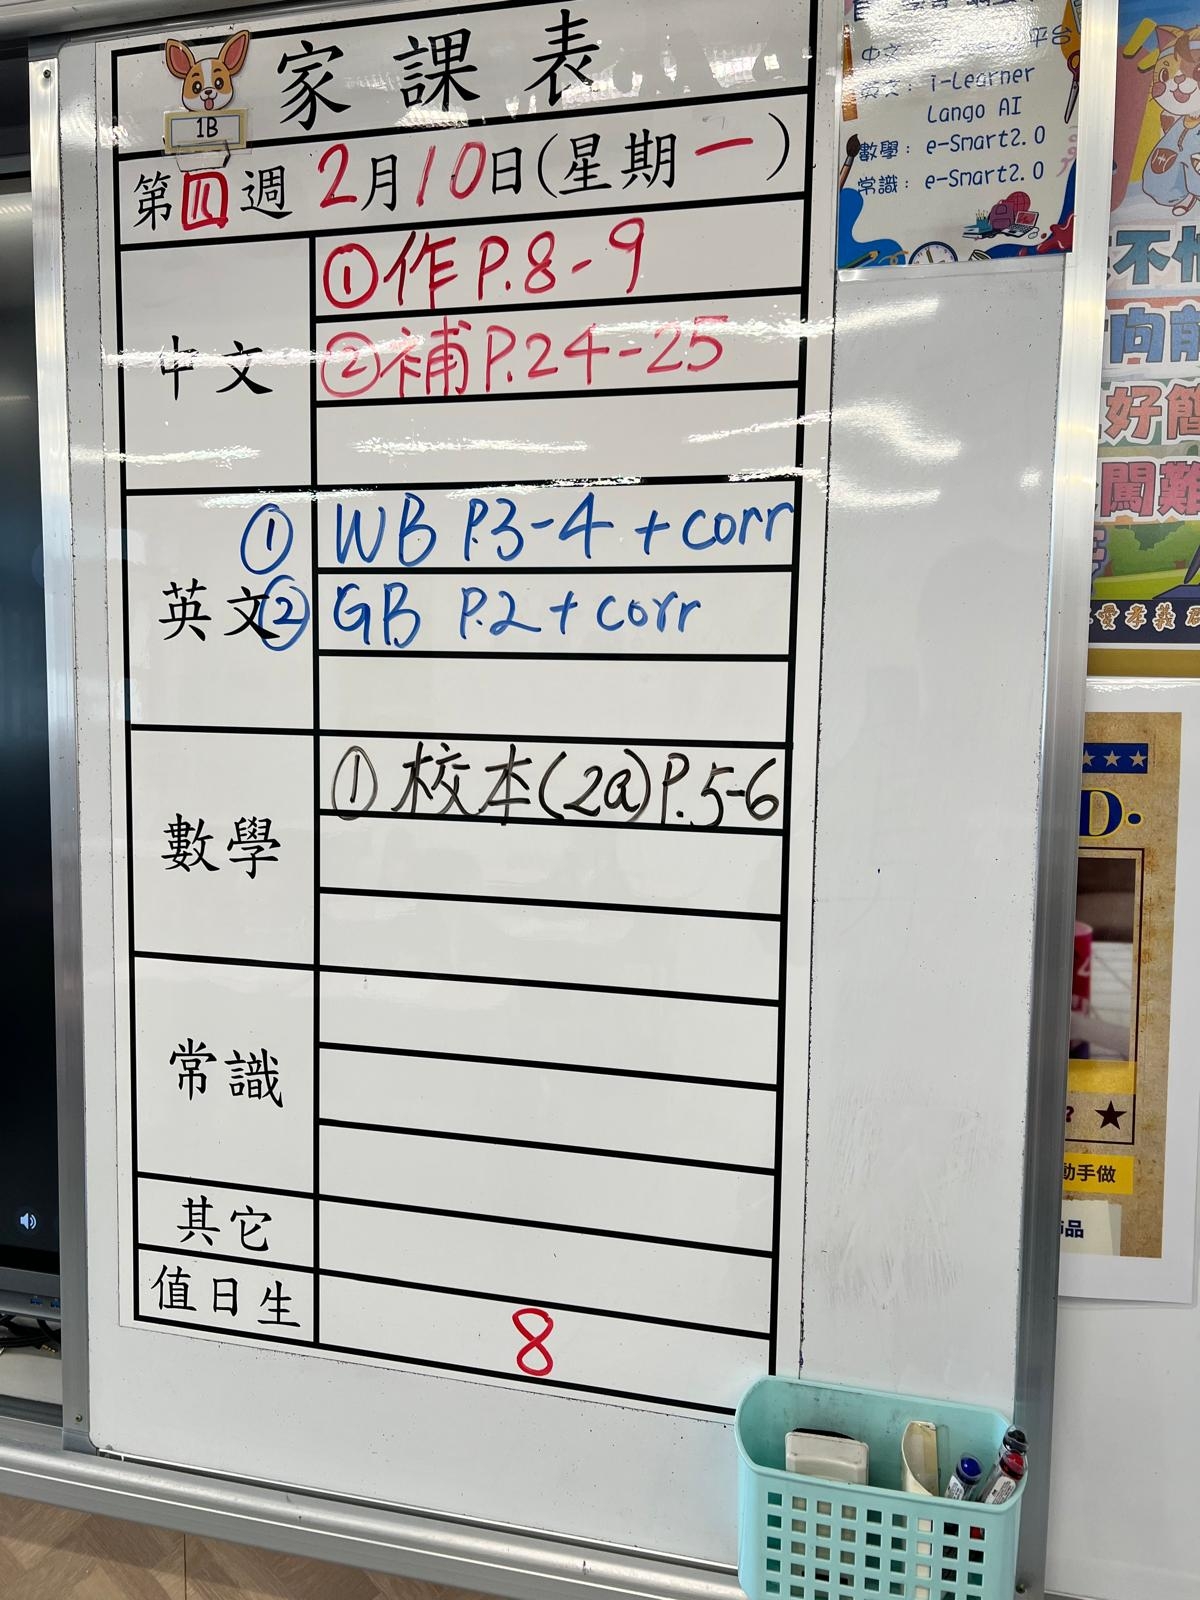 家課表
1B
第四週 2月10日(星期一)
中文
①作 P.8-9
②補 P.24-25
英文
① WB P.3-4 + corr
② GB P.2 + corr
數學
① 校本(2a)P.5-6
常識
其它
值日生
8
中文：
平台
英文： i-Learner
Lango AI
數學： e-Smart2.0
常識： e-Smart2.0
不
向前
好簡
闖難
愛孝義
D.
?
動手做
品